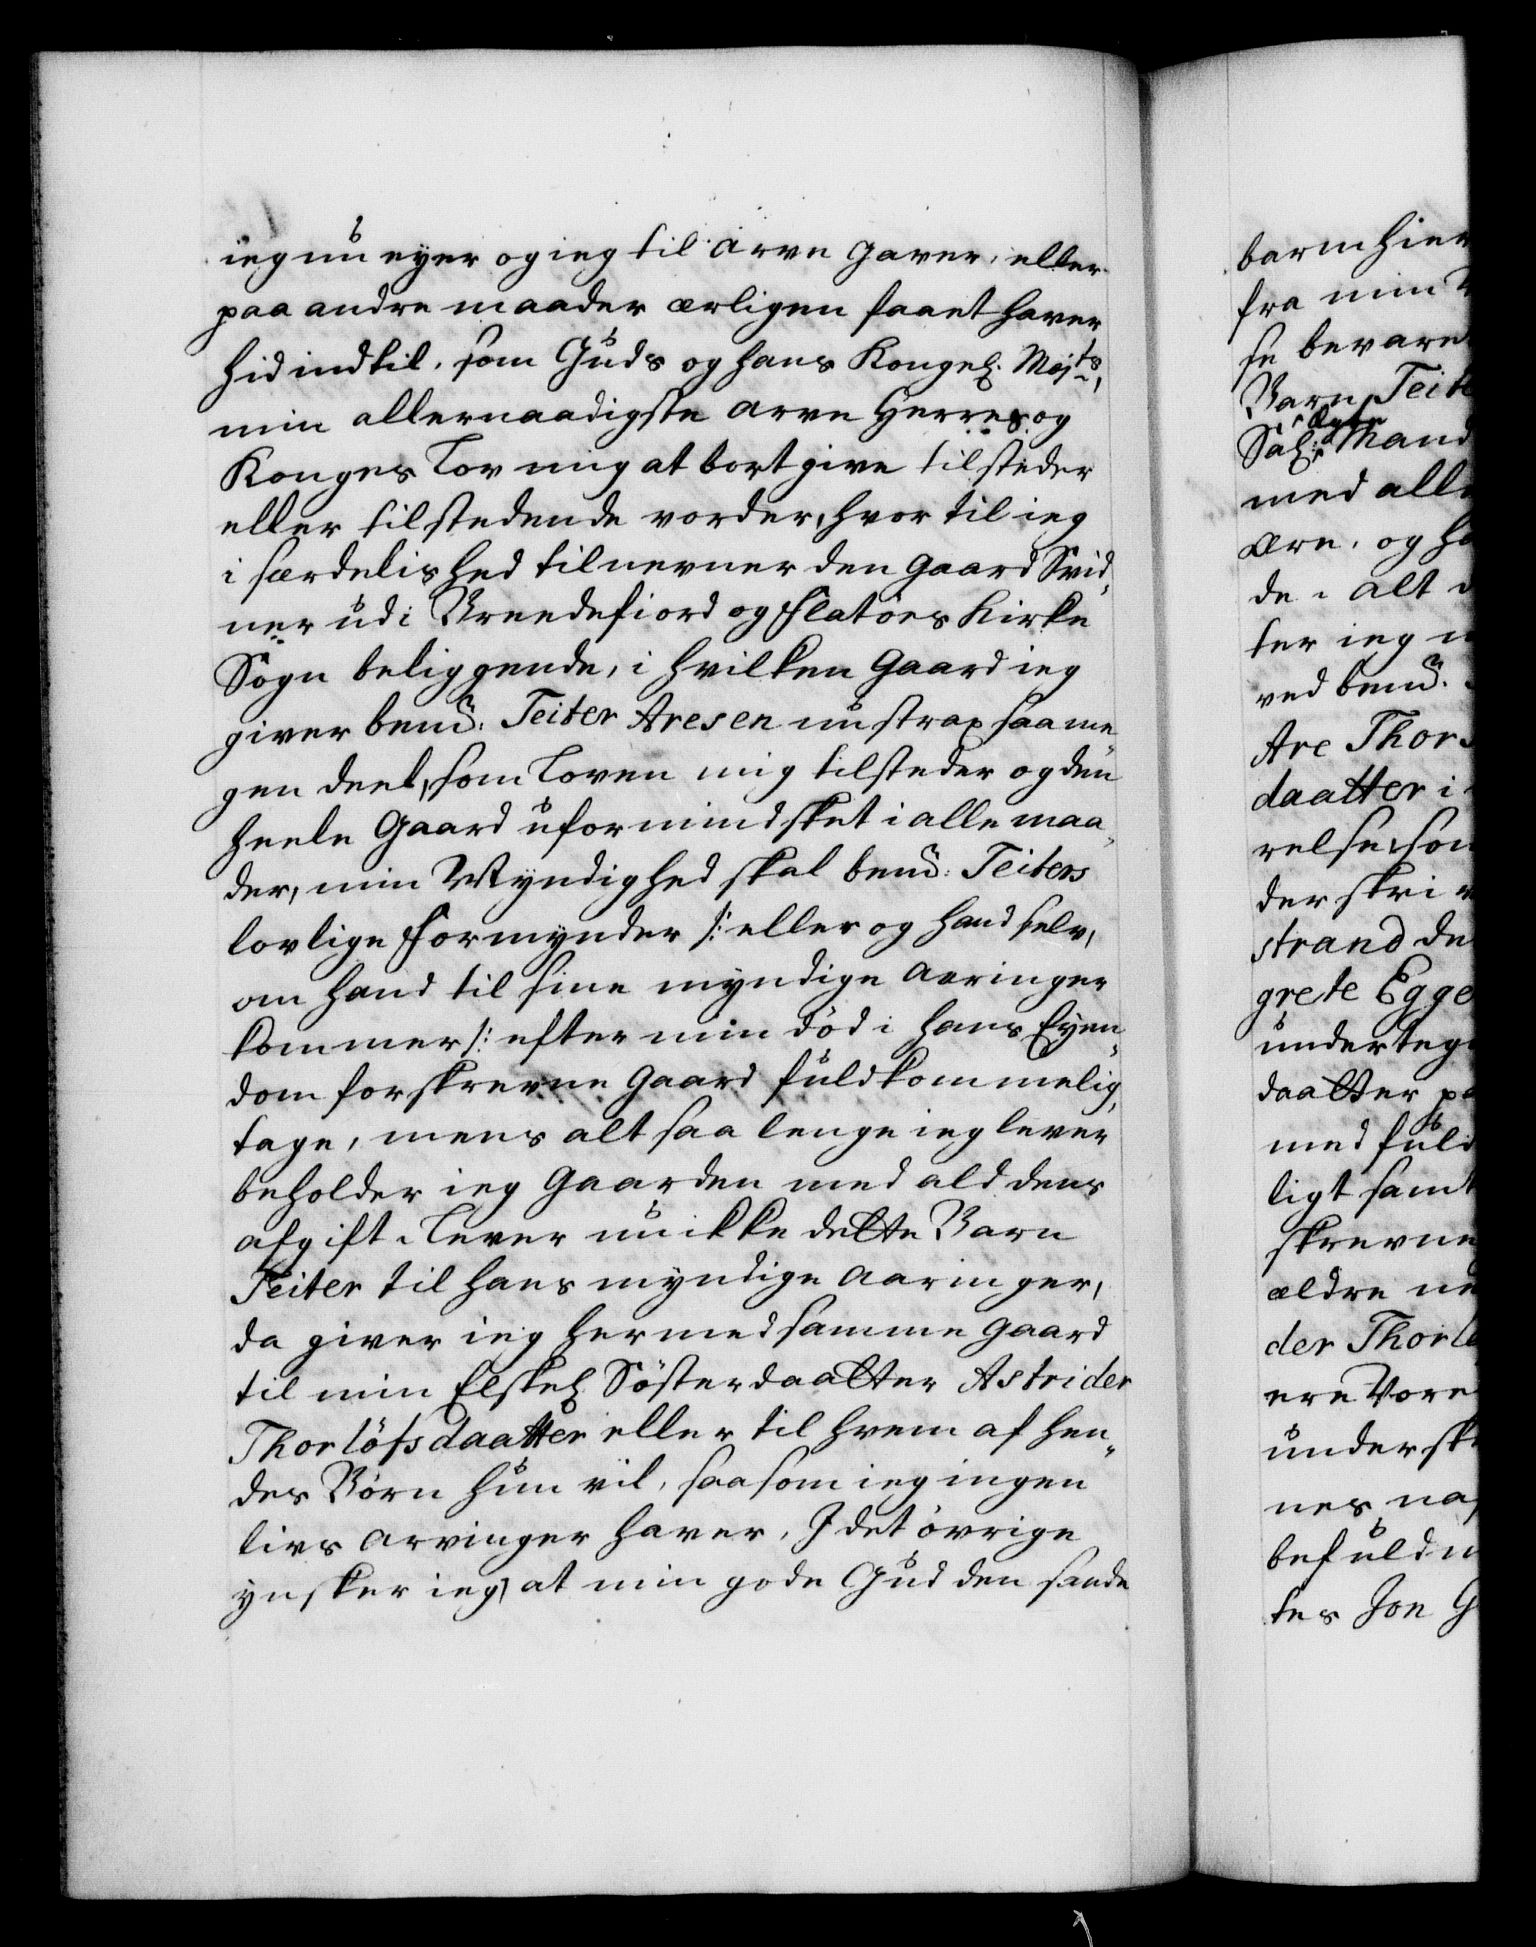 ieg nu eyer og ieg til Arve Gaver, eller
paa andre maader ærligen faaet haver
hid indtil, som Guds og hans Kongel. Majts,
min allernaadigste Arve Herres og
Konges Lov mig at bortgive tilsteder
eller tilstedende vorder, hvor til ieg
i særdelished tilnevner den Gaard Svid„
ner udi Breedefiord og Flatöes Kirke
Sogn beliggende, i hvilken Gaard ieg
giver bemt: Teiter Aresen nu strax saa me
gen deel, som Loven mig tilsteder og den
heele Gaard uformindsket i alle maa„
der, min Myndighed skal bemt: Teiters
lovlige Formynder /: eller og hand selv,
om hand til sine myndige Aaringer
kommer /: efter min död i hans Eyen„
dom forskrevne Gaard fuldkommelig
tage, mens alt saa lenge ieg lever
beholder ieg Gaarden med ald dens
afgift. Lever nu ikke dette Barn
Teiter til hans myndige Aaringer,
da giver ieg hermed samme Gaard
til min Elskel Sösterdaatter Astrider
Thorlöfsdaatter eller til hvem af hen„
des Börn hun vil, saasom ieg ingen
livs Arvinger haver, I det övrige
ynsker ieg, at min gode Gud den sande
barmhier
fra min
se bevare
Barn Teite
Sal: Mand
med alle
ære, og h
de i alt
ter ieg
ved bemt.
Are Thor
daatter i
relse, som
der skri
strand de
grete Egge
underteg
daatter p
med fuld
ligt samt
skrevne
ældre
der Thorl
ere Vore
undersk
nes na
befuld
tes Jon G